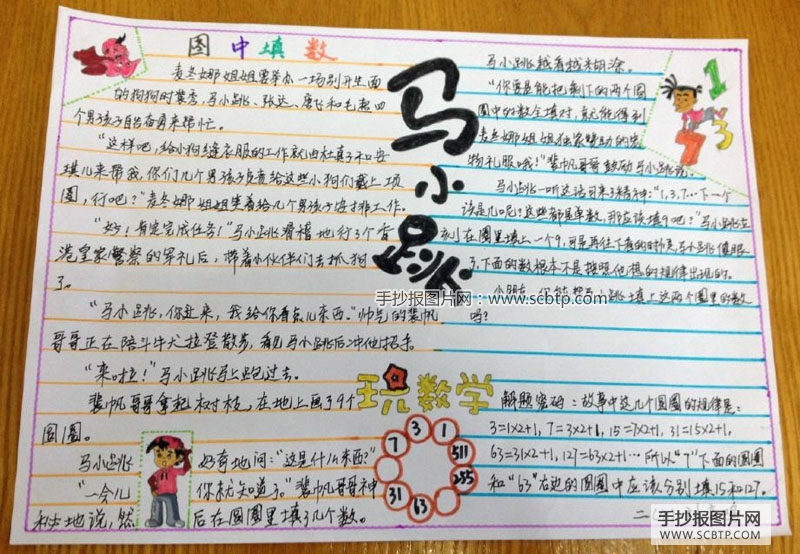 图中填数
麦冬娜姐姐要举办一场别开生面
的狗狗时装秀,马小跳、张达、唐飞和毛超四
个男孩子自告奋勇来帮忙。
“这样吧,给小狗缝衣服的工作就由杜真子和安
琪儿来帮我,你们几个男孩子负责给这些小狗们戴上项
圈,行吧?”麦冬娜姐姐笑着给几个男孩子安排工作。
“好!肯定完成任务!”马小跳滑稽地行了个香
港皇家警察的军礼后,带着小伙伴们去抓狗
了。
“马小跳,你过来,我给你看点儿东西。”帅气的裴帆
哥哥正在陪斗牛犬拉登散步,看见马小跳后冲他招手。
“来啦!”马小跳马上跑过去。
裴帆哥哥拿起树枝,在地上画了9个
圆圈。
马小跳好奇地问:“这是什么东西?”
“一会儿你就知道了。”裴帆哥哥神
秘地说,然后在圆圈里填了几个数。
马小跳
马小跳越看越糊涂。
“你要是能把剩下的两个圆
圈中的数全填对,就能得到
麦冬娜姐姐独家赞助的宠
物礼服哦!”裴帆哥哥鼓动马小跳说。
马小跳一听这话可来了精神:“1,3,7…下一个
该是几呢?这些都是单数,那应该填9吧?”马小跳立
刻在圈里填上一个9,可是再往下看的时候,马小跳傻眼
了,下面的数根本不是按照他想的规律出现的。
小朋友,你能帮马小跳填上这两个圈里的数
吗?
手抄报图片网:www.scbtp.com
玩数学
1
3
7
31
63
255
511
解题密码:故事中这几个圆圈的规律是:
3=1x2+1,7=3x2+1,15=7x2+1,31=15x2+1,
63=31x2+1,127=63x2+1…所以“7”下面的圆圈
和“63”右边的圆圈中应该分别填15和127。
1
7
3
二
手抄报图片网
WWW.SCBTP.COM